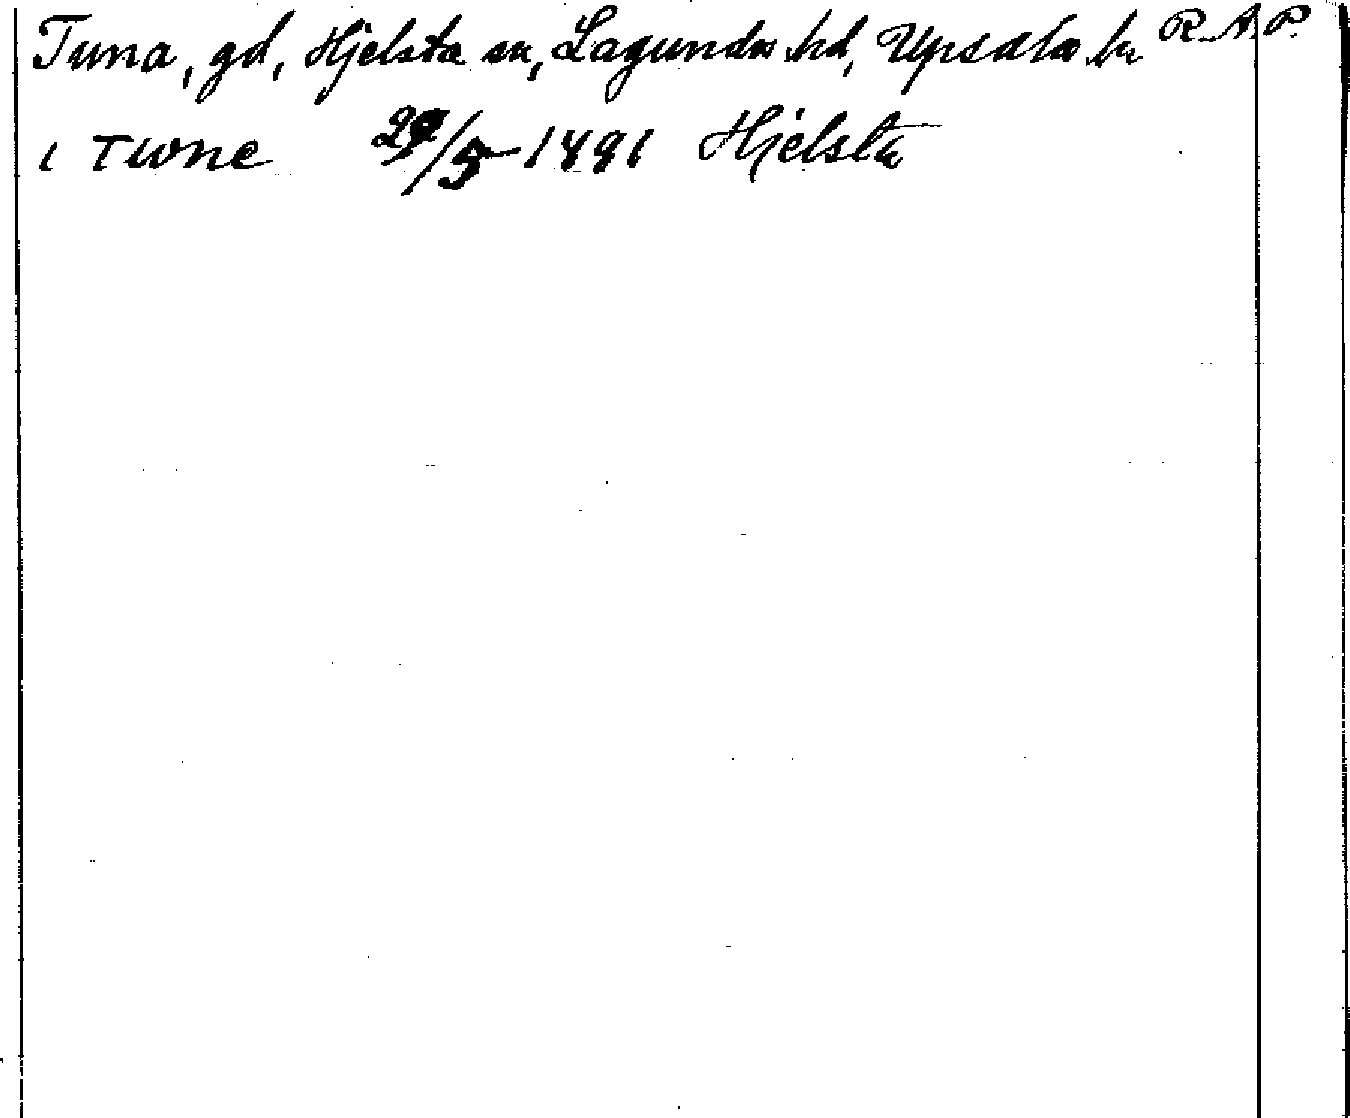 Tuna, gd, Hjelsta sn, Lagunda hd, Upsala län R.A.P.
i Twne 29/5 1491 Hjelsta